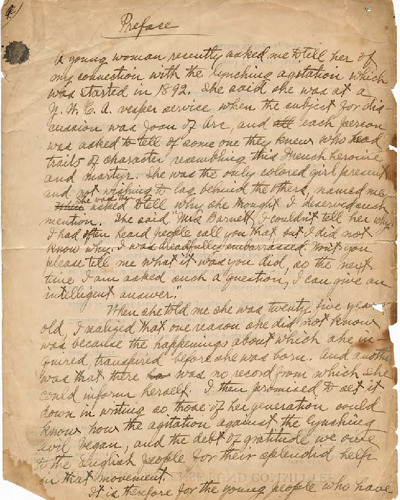 Preface
A young woman recently asked me to tell her of
my connection with the lynching agitation which
was started in 1892. She said she was at a
Y.W.C.A. vesper service when the subject for dis
cussion was Joan of Arc, and all each person
was asked to tell of some one they knew who had
traits of character resembling this French heroine
and martyr. She was the only colored girl present
and not wishing to lag behind the others, named me.
She was then asked to tell why she thought I deserved such
mention. She said "Mrs Barnett I couldn't tell her why
I had often heard people call you that but I did not
know why. I was dreadfully embarrassed. Won't you
please tell me what it was you did, so the next
time I am asked such a question, I can give an
intelligent answer."
When she told me she was twenty five years
old, I realized that one reason she did not know
was because the happenings about which she in
quired transpired before she was born. And another
was that there was no record from which she
could inform herself. I then promised to set it
down in writing so those of her generation could
know how the agitation against the lynching
evil began, and the debt of gratitude we owe
to the English people for their splendid help
in that movement.
It is therefore for the young people who have